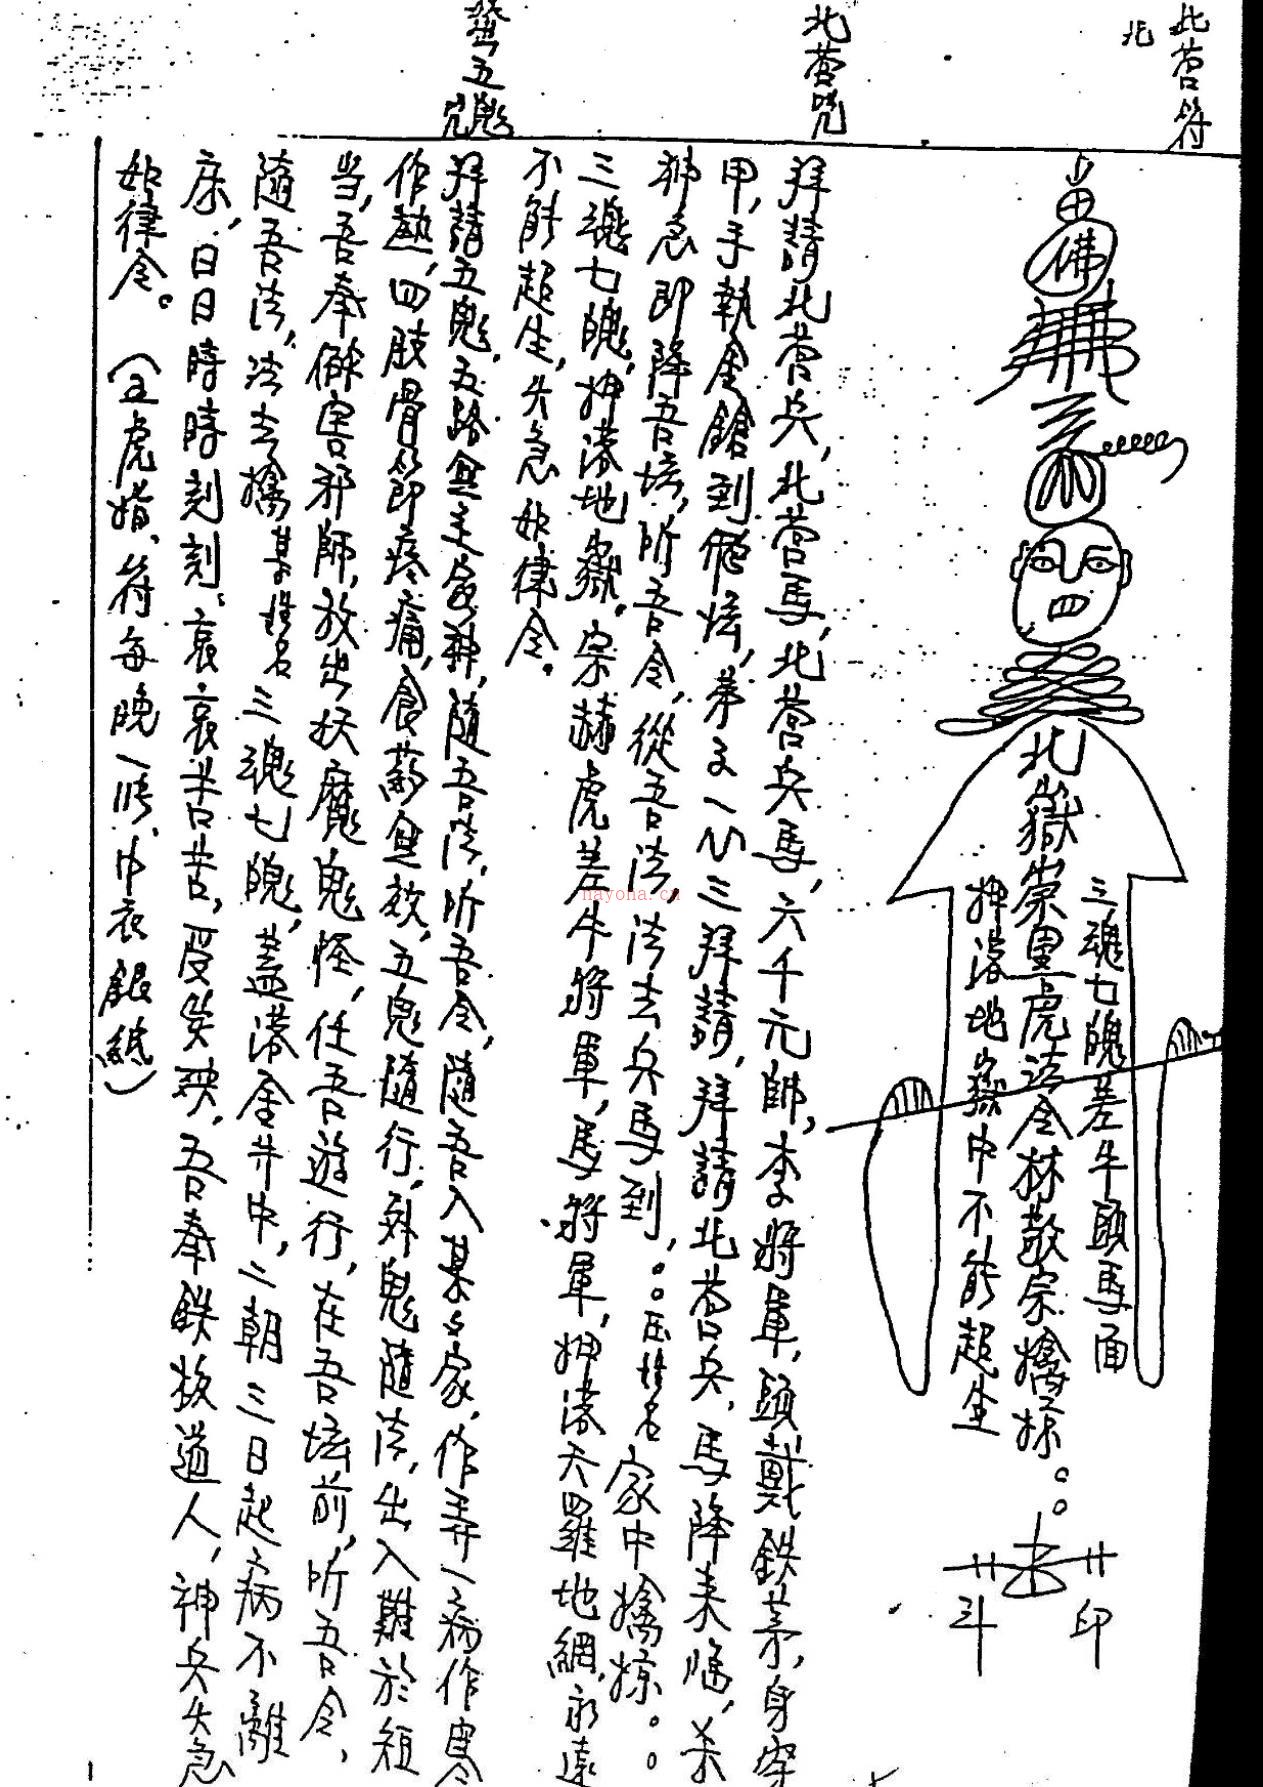 北营符
北
佛
北嶽崇黑虎法令林敬宗擒捺。。
三魂七魄差牛頭馬面
押落地嶽中不能超生
印
斗
北营咒
拜請北营兵,北营馬,北营兵馬,六千元帥,李將軍,頭戴鉄
甲,手執金鎗到 壇,弟子一心三拜請,拜請北营兵,馬降来臨,
急即降吾壇,听吾令,從吾法法去兵馬到,。。 姓名家中擒捺。。
三魂七魄,押落地嶽。宗赫虎差牛將軍,馬將軍,押落天羅地網,永遠
不能超生,火急如律令。
五鬼咒
拜請五鬼,五路無主家神,隨吾法,听吾令,隨吾入某々家,作弄一病作寒
作熱,四肢骨節疼痛,食葯無效,五鬼隨行,外鬼隨法,出入難於祖
当,吾奉 害邪師,放出妖魔鬼怪,任吾遊行,在吾壇前,听吾令,
隨吾法,法去擒某姓名三魂七魄,蓋落金井中,二朝三日起病不離
床,日日時時刻刻,哀哀苦苦,受災殃,吾奉鉄板道人,神兵火急
如律令。(五虎指、符每晚一 、巾衣銀紙)
nayona.cn